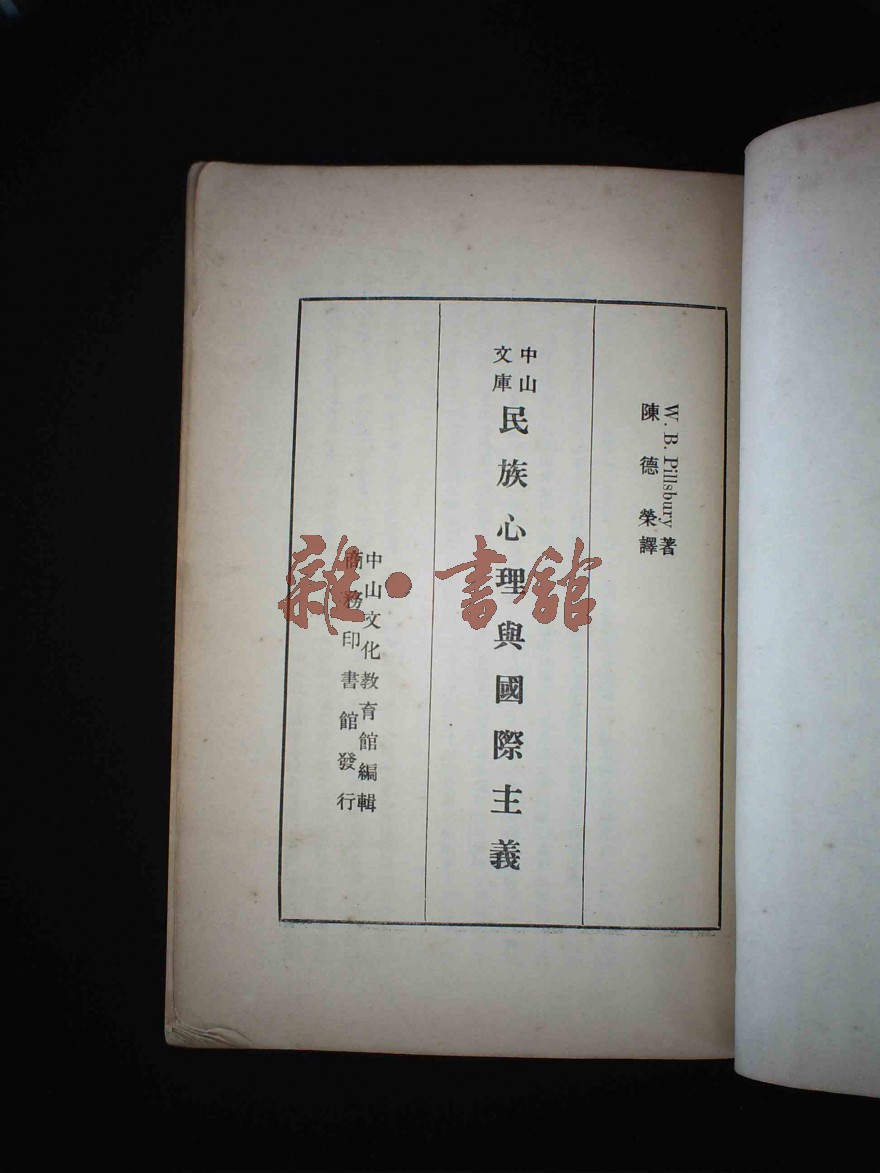 W. B. Pillsbury 著
陳德榮譯
中山
文庫
民族心理與國際主義
中山文化教育館編輯
商務印書館發行
雜·書館